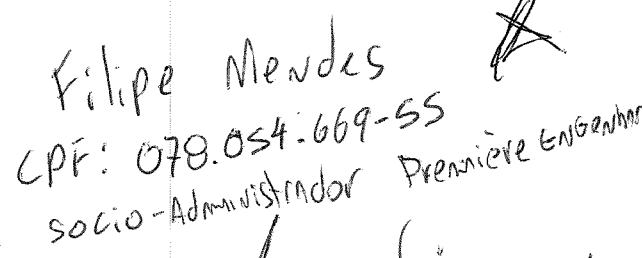 Filipe Mendes
CPF: 078.054.669-55
Socio-Administrador Première Engenhar